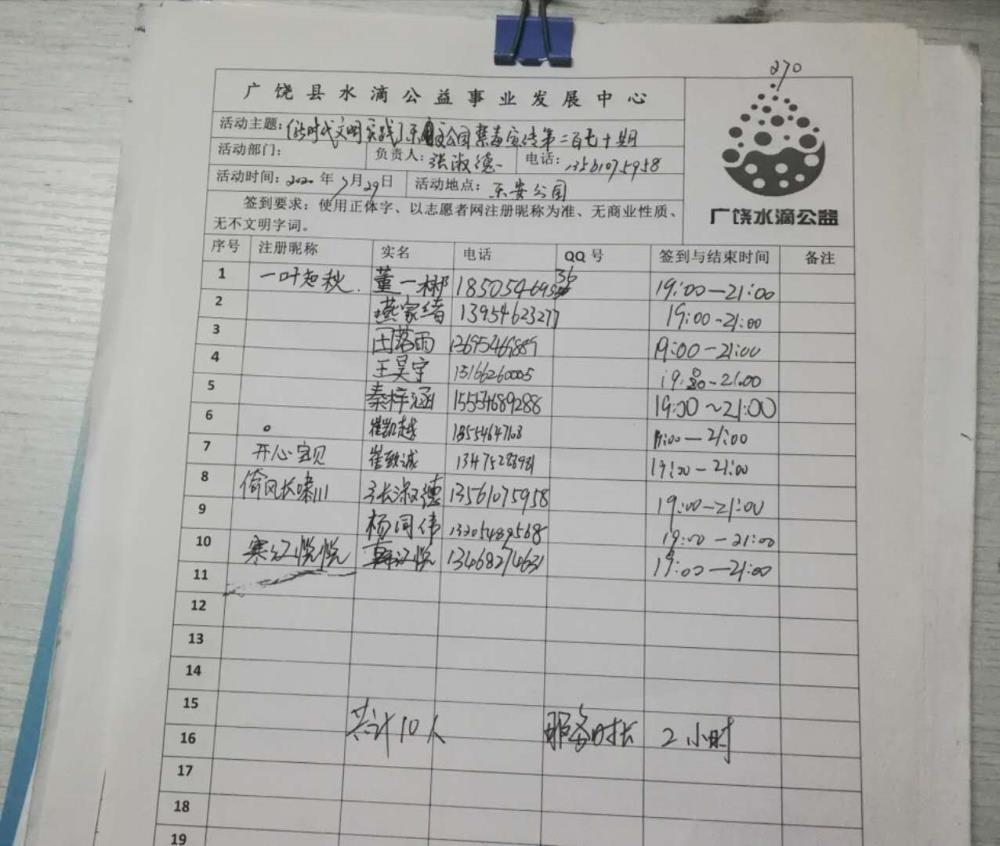 270
广饶县水滴公益事业发展中心
活动主题:新时代文明实践 东安公园禁毒宣传第二百七十期
活动部门: 负责人:张淑德 电话:13561075958
活动时间:2020年7月29日 活动地点:东安公园
签到要求:使用正体字、以志愿者网注册昵称为准、无商业性质、
无不文明字词。
广饶水滴公益
序号 注册昵称 实名 电话 QQ号 签到与结束时间 备注
1 一叶知秋 董一郴 19:00—21:00
2 燕家绪 13954623277 19:00-21:00
3 田若雨 13695469889 19:00-21:00
4 王昊宇 13166260005 19:00-21:00
5 秦梓涵 15554689288 19:00~21:00
6 崔凯越 18554647108 19:00-21:00
7 开心宝贝 崔致诚 13475288981 19:00-21:00
8 倚风长啸川 张淑德 13561075958 19:00-21:00
9 杨同伟 13205489568 19:00-21:00
10 寒江悦悦 韩江悦 13468274631 19:00-21:00
11
12
13
14
15
16 共计10人 服务时长 2小时
17
18
19